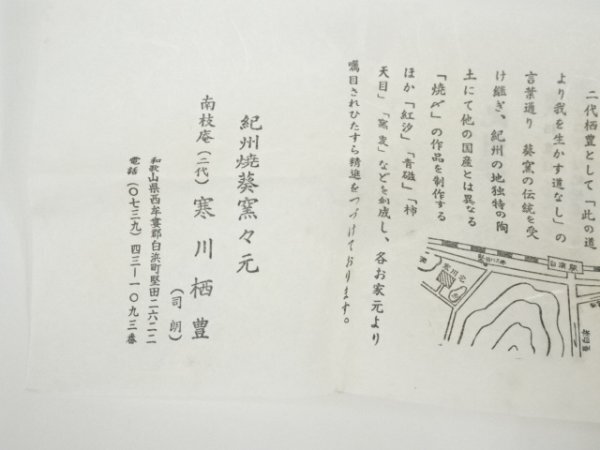 二代栖豊として「此の道
より我を生かす道なし」の
言葉通り 葵窯の伝統を受
け継ぎ、紀州の地独特の陶
土にて他の国産とは異なる
「焼〆」の作品を制作する
ほか「紅汐」「青磁」「柿
天目」「窯変」などを焼成し、各お家元より
嘱目されひたすら精進をつづけております。
紀州焼葵窯々元
南枝庵(二代) 寒川栖豊
(司朗)
和歌山県西牟婁郡白浜町堅田二六二二
電話(〇七三九)四三―一〇九三番
白浜駅